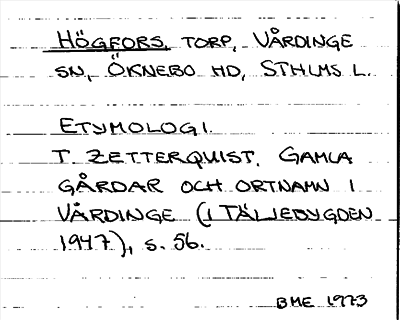 HÖGFORS, TORP, VÅRDINGE
SN, ÖKNEBO HD, STHLMS L.
ETYMOLOGI.
T. ZETTERQUIST, GAMLA
GÅRDAR OCH ORTNAMN I
VÅRDINGE (I TÄLJEBYGDEN
1947), S. 56.
BME 1973